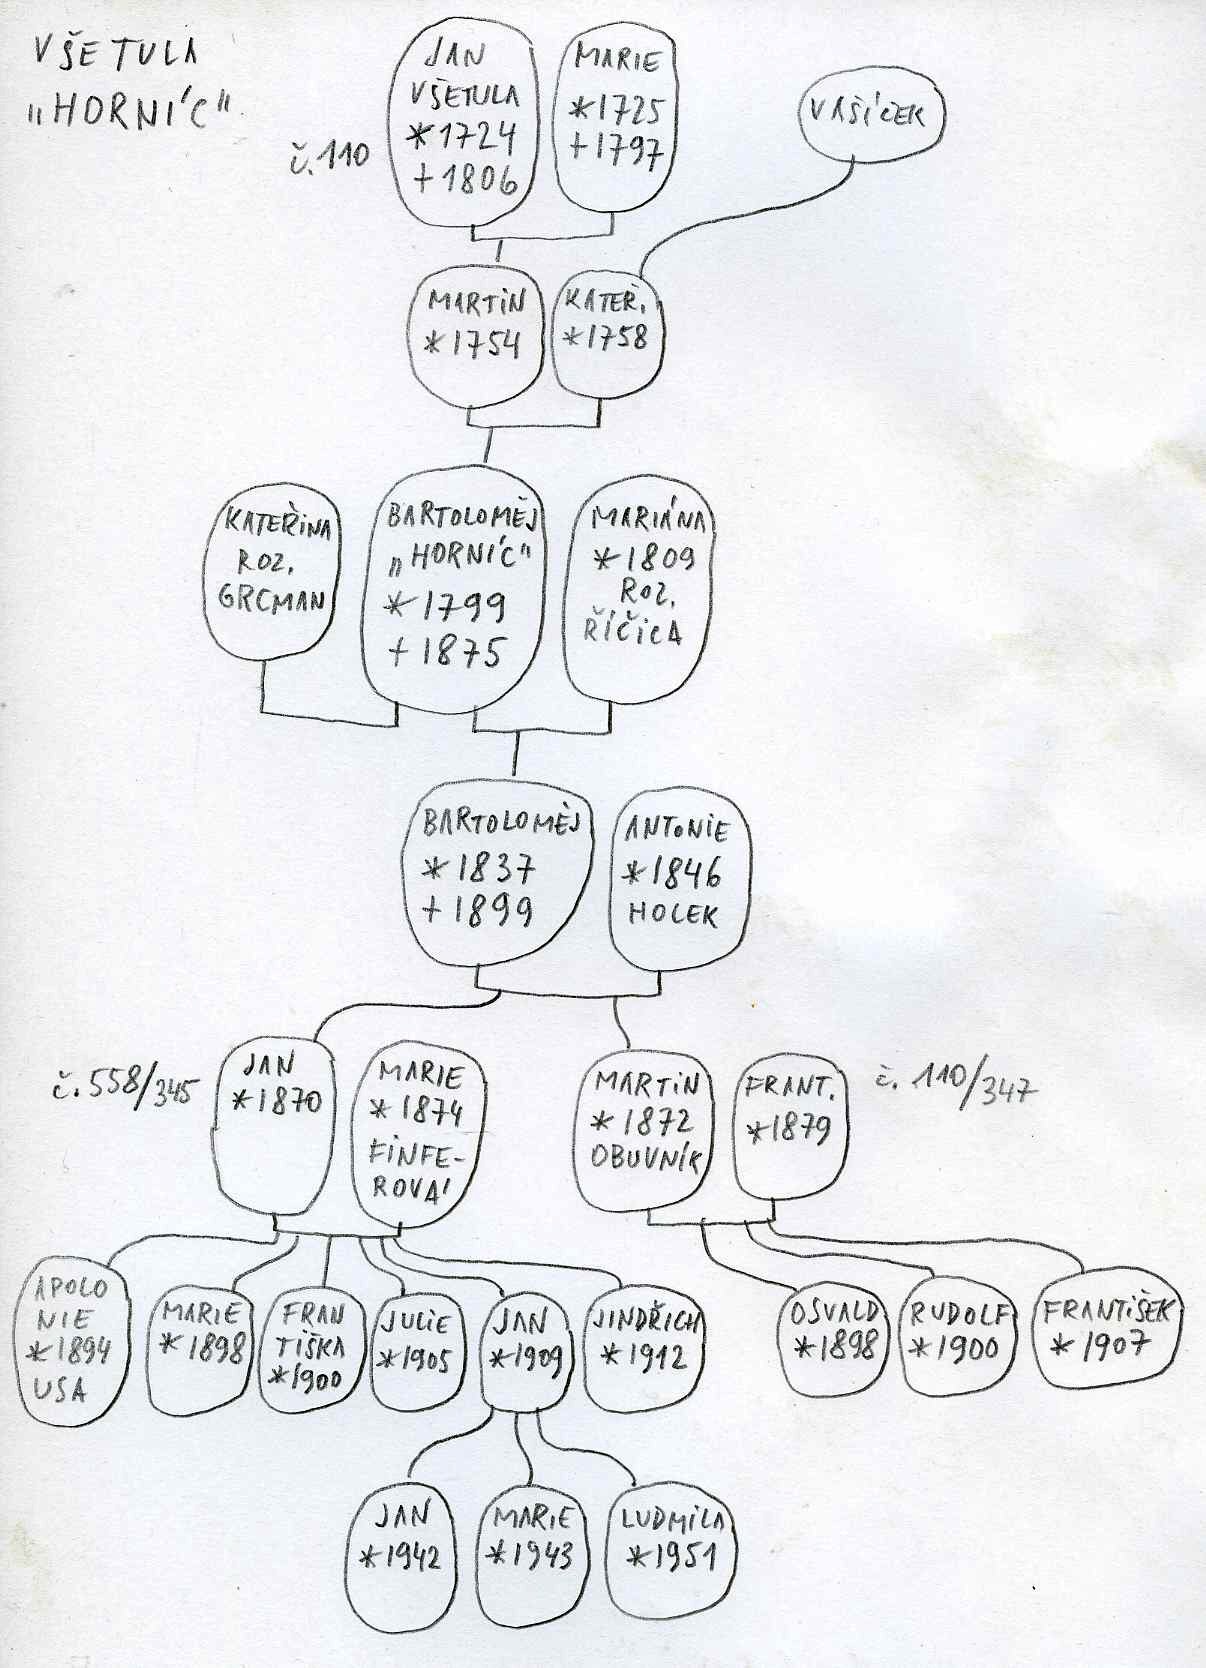 VŠETULA
„HORNÍC"
č.110
JAN
VŠETULA
*1724
+1806
MARIE
*1725
+1797
VAŠÍČEK
MARTIN
*1754
KATEŘ.
*1758
KATEŘINA
ROZ.
GRCMAN
BARTOLOMĚJ
„HORNÍC"
*1799
+1875
MARIÁNA
*1809
ROZ.
ŘÍČICA
BARTOLOMĚJ
*1837
+1899
ANTONIE
*1846
HOLEK
č.558/345
JAN
*1870
MARIE
*1874
FINFE-
ROVÁ
MARTIN
*1872
OBUVNÍK
FRANT.
*1879
č. 110/347
APOLO
NIE
*1894
USA
MARIE
*1898
FRAN
TIŠKA
*1900
JULIE
*1905
JAN
*1909
JINDŘICH
*1912
OSVALD
*1898
RUDOLF
*1900
FRANTIŠEK
*1907
JAN
*1942
MARIE
*1943
LUDMILA
*1951